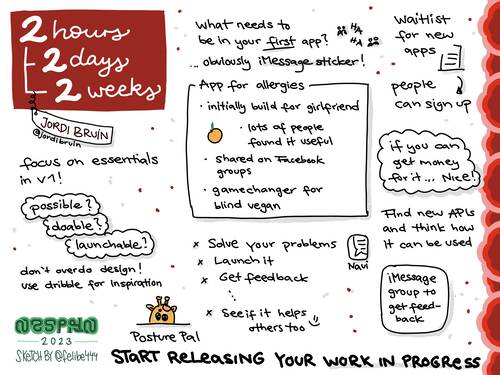 2 hours
2 days
2 weeks
JORDI BRUIN
@jordibruin
focus on essentials
in v1!
possible?
doable?
launchable?
don't overdo design!
use dribble for inspiration
NSSPAIN
2023
SKETCH BY @felibe444
Posture Pal
what needs to
be in your first app?
HA
HA
... obviously iMessage sticker!
App for allergies
• initially build for girlfriend
• lots of people
found it useful
• shared on Facebook
groups
• gamechanger for
blind vegan
x Solve your problems
x Launch it
x Get feedback
x See if it helps
others too
Navi
waitlist
for new
apps
people
can sign up
if you can
get money
for it... Nice!
Find new APIs
and think how
it can be used
iMessage
group to
get feed-
back
START RELEASING YOUR WORK IN PROGRESS